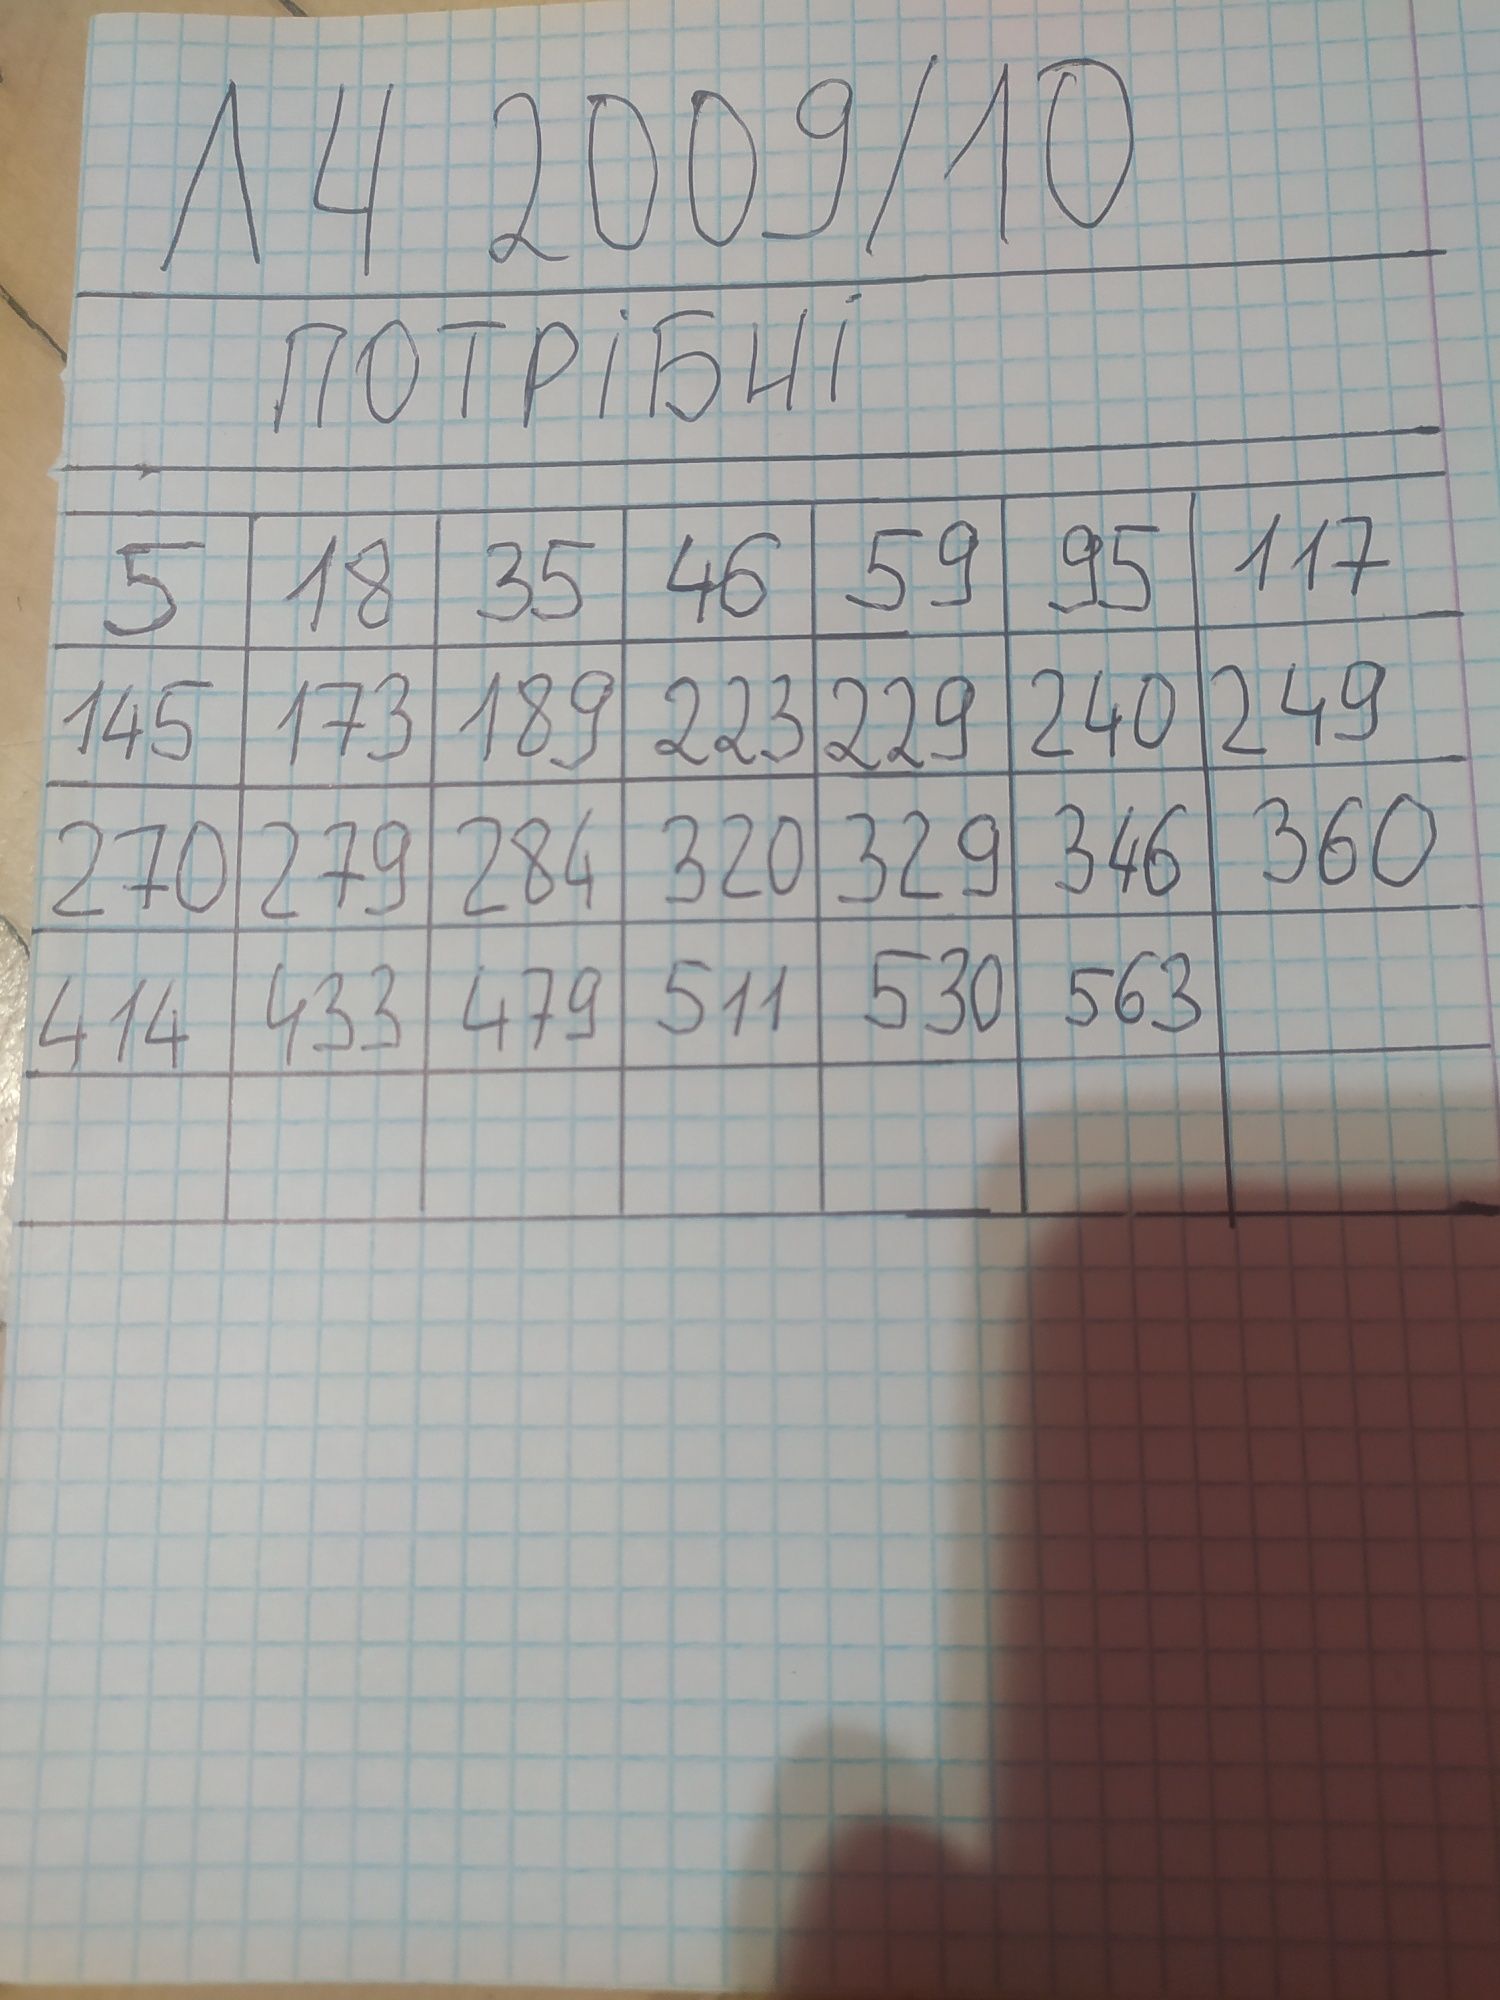 ЛЧ 2009/10
ПОТРІБНІ
5 18 35 46 59 95 117
145 173 189 223 229 240 249
270 279 284 320 329 346 360
414 433 479 511 530 563